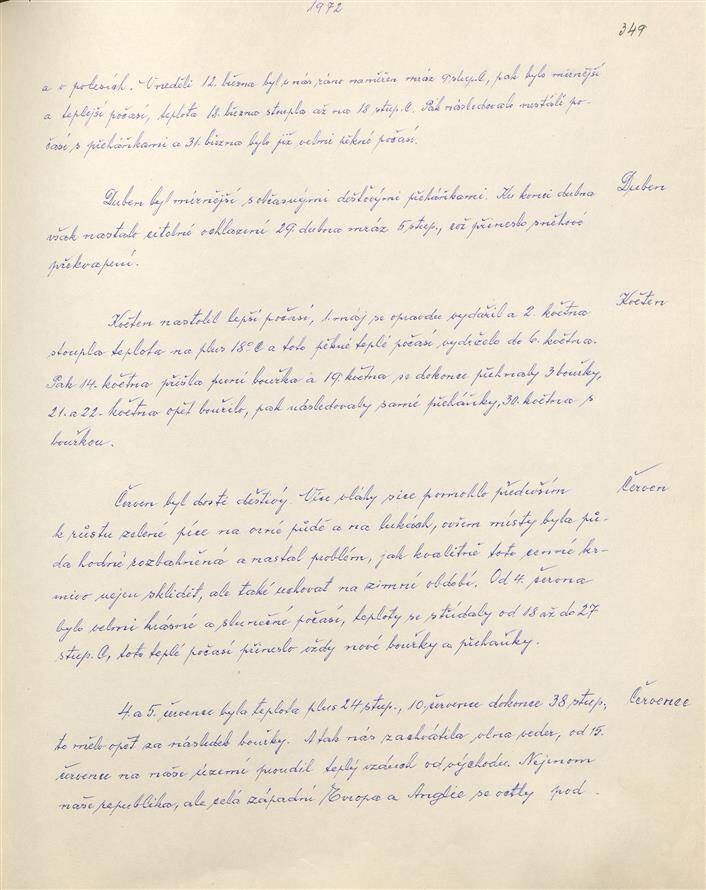 1972
349
a v polesích. V neděli 12. března byl u nás ráno naměřen mráz 9 stup.C, pak bylo mírnější
a teplejší počasí, teplota 18. března stoupla až na 18 stup. C. Pak následovalo nestálé po-
časí s přeháňkami a 31. března bylo již velmi pěkné počasí.
Duben byl mírnější s občasnými dešťovými přeháňkami. Ku konci dubna
Duben
však nastalo citelné ochlazení 29. dubna mráz 5 stup., což přineslo sněhové
překvapení.
Květen nastolil lepší počasí, 1. máj se opravdu vydařil a 2. května
Květen
stoupla teplota na plus 18°C a toto pěkné teplé počasí vydrželo do 6. května.
Pak 14. května přišla první bouřka a 19. května se dokonce přehnaly 3 bouřky,
21. a 22. května opět bouřilo, pak následovaly samé přeháňky, 30. května s
bouřkou.
Červen byl dosti deštivý. Více vláhy sice pomohlo především
Červen
k růstu zelené píce na orné půdě a na lukách, ovšem místy byla pů-
da hodně rozbahněná a nastal problém, jak kvalitně toto cenné kr-
mivo nejen sklidit, ale také uchovat na zimní období. Od 4. června
bylo velmi krásné a slunečné počasí, teploty se střídaly od 18 až do 27
stup. C, toto teplé počasí přineslo vždy nové bouřky a přeháňky.
4. a 5. července byla teplota plus 24 stup., 10. července dokonce 38 stup.,
Červenec
to mělo opět za následek bouřky. A tak nás zachvátila vlna veder, od 15.
července na naše území proudil teplý vzduch od východu. Nejenom
naše republika, ale celá západní Evropa a Anglie se octly pod